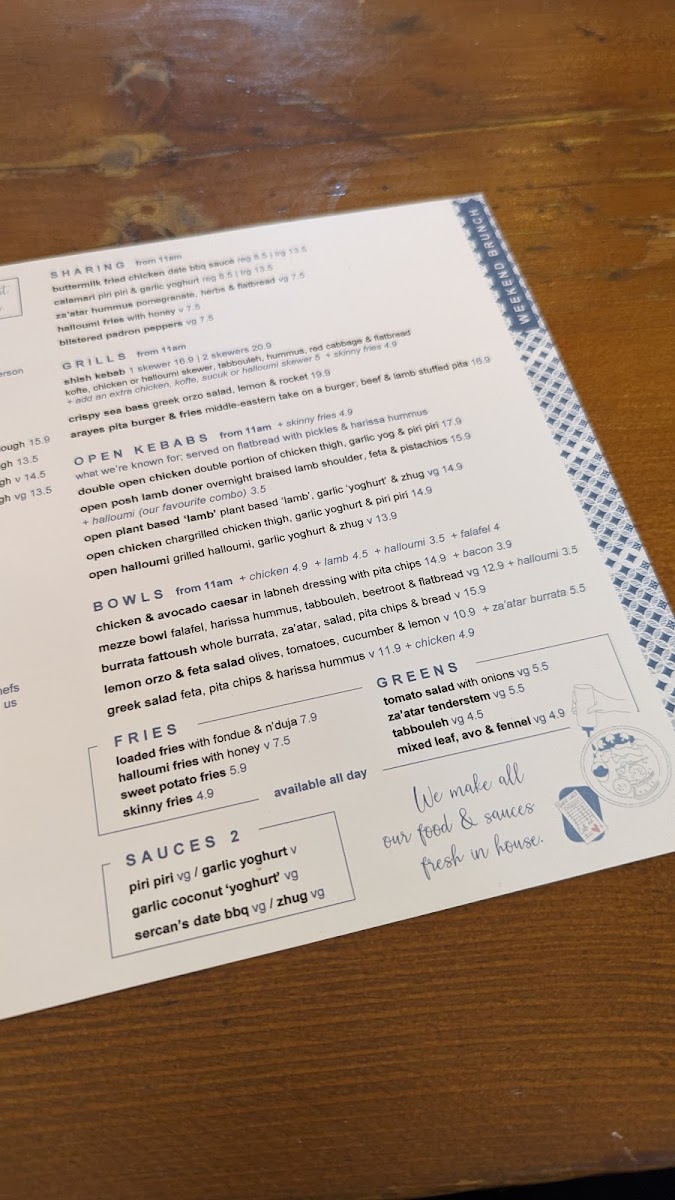 WEEKEND BRUNCH
SHARING from 11am
buttermilk fried chicken date bbq sauce reg 8.5 | lrg 13.5
calamari piri piri & garlic yoghurt reg 8.5 | lrg 13.5
za'atar hummus pomegranate, herbs & flatbread vg 7.5
halloumi fries with honey v 7.5
blistered padron peppers vg 7.5
GRILLS from 11am
shish kebab 1 skewer 16.9 | 2 skewers 20.9
kofte, chicken or halloumi skewer, tabbouleh, hummus, red cabbage & flatbread
+ add an extra chicken, kofte, sucuk or halloumi skewer 5 + skinny fries 4.9
crispy sea bass greek orzo salad, lemon & rocket 19.9
arayes pita burger & fries middle-eastern take on a burger, beef & lamb stuffed pita 16.9
OPEN KEBABS from 11am + skinny fries 4.9
what we're known for; served on flatbread with pickles & harissa hummus
double open chicken double portion of chicken thigh, garlic yog & piri piri 17.9
open posh lamb doner overnight braised lamb shoulder, feta & pistachios 15.9
+ halloumi (our favourite combo) 3.5
open plant based 'lamb' plant based 'lamb', garlic 'yoghurt' & zhug vg 14.9
open chicken chargrilled chicken thigh, garlic yoghurt & piri piri 14.9
open halloumi grilled halloumi, garlic yoghurt & zhug v 13.9
BOWLS from 11am + chicken 4.9 + lamb 4.5 + halloumi 3.5 + falafel 4
chicken & avocado caesar in labneh dressing with pita chips 14.9 + bacon 3.9
mezze bowl falafel, harissa hummus, tabbouleh, beetroot & flatbread vg 12.9 + halloumi 3.5
burrata fattoush whole burrata, za'atar, salad, pita chips & bread v 15.9
lemon orzo & feta salad olives, tomatoes, cucumber & lemon v 10.9 + za'atar burrata 5.5
greek salad feta, pita chips & harissa hummus v 11.9 + chicken 4.9
FRIES
loaded fries with fondue & n'duja 7.9
halloumi fries with honey v 7.5
sweet potato fries 5.9
skinny fries 4.9
GREENS
tomato salad with onions vg 5.5
za'atar tenderstem vg 5.5
tabbouleh vg 4.5
mixed leaf, avo & fennel vg 4.9
available all day
SAUCES 2
piri piri vg / garlic yoghurt v
garlic coconut 'yoghurt' vg
sercan's date bbq vg / zhug vg
We make all
our food & sauces
fresh in house.
erson
ough 15.9
gh 13.5
gh v 14.5
gh vg 13.5
hefs
us